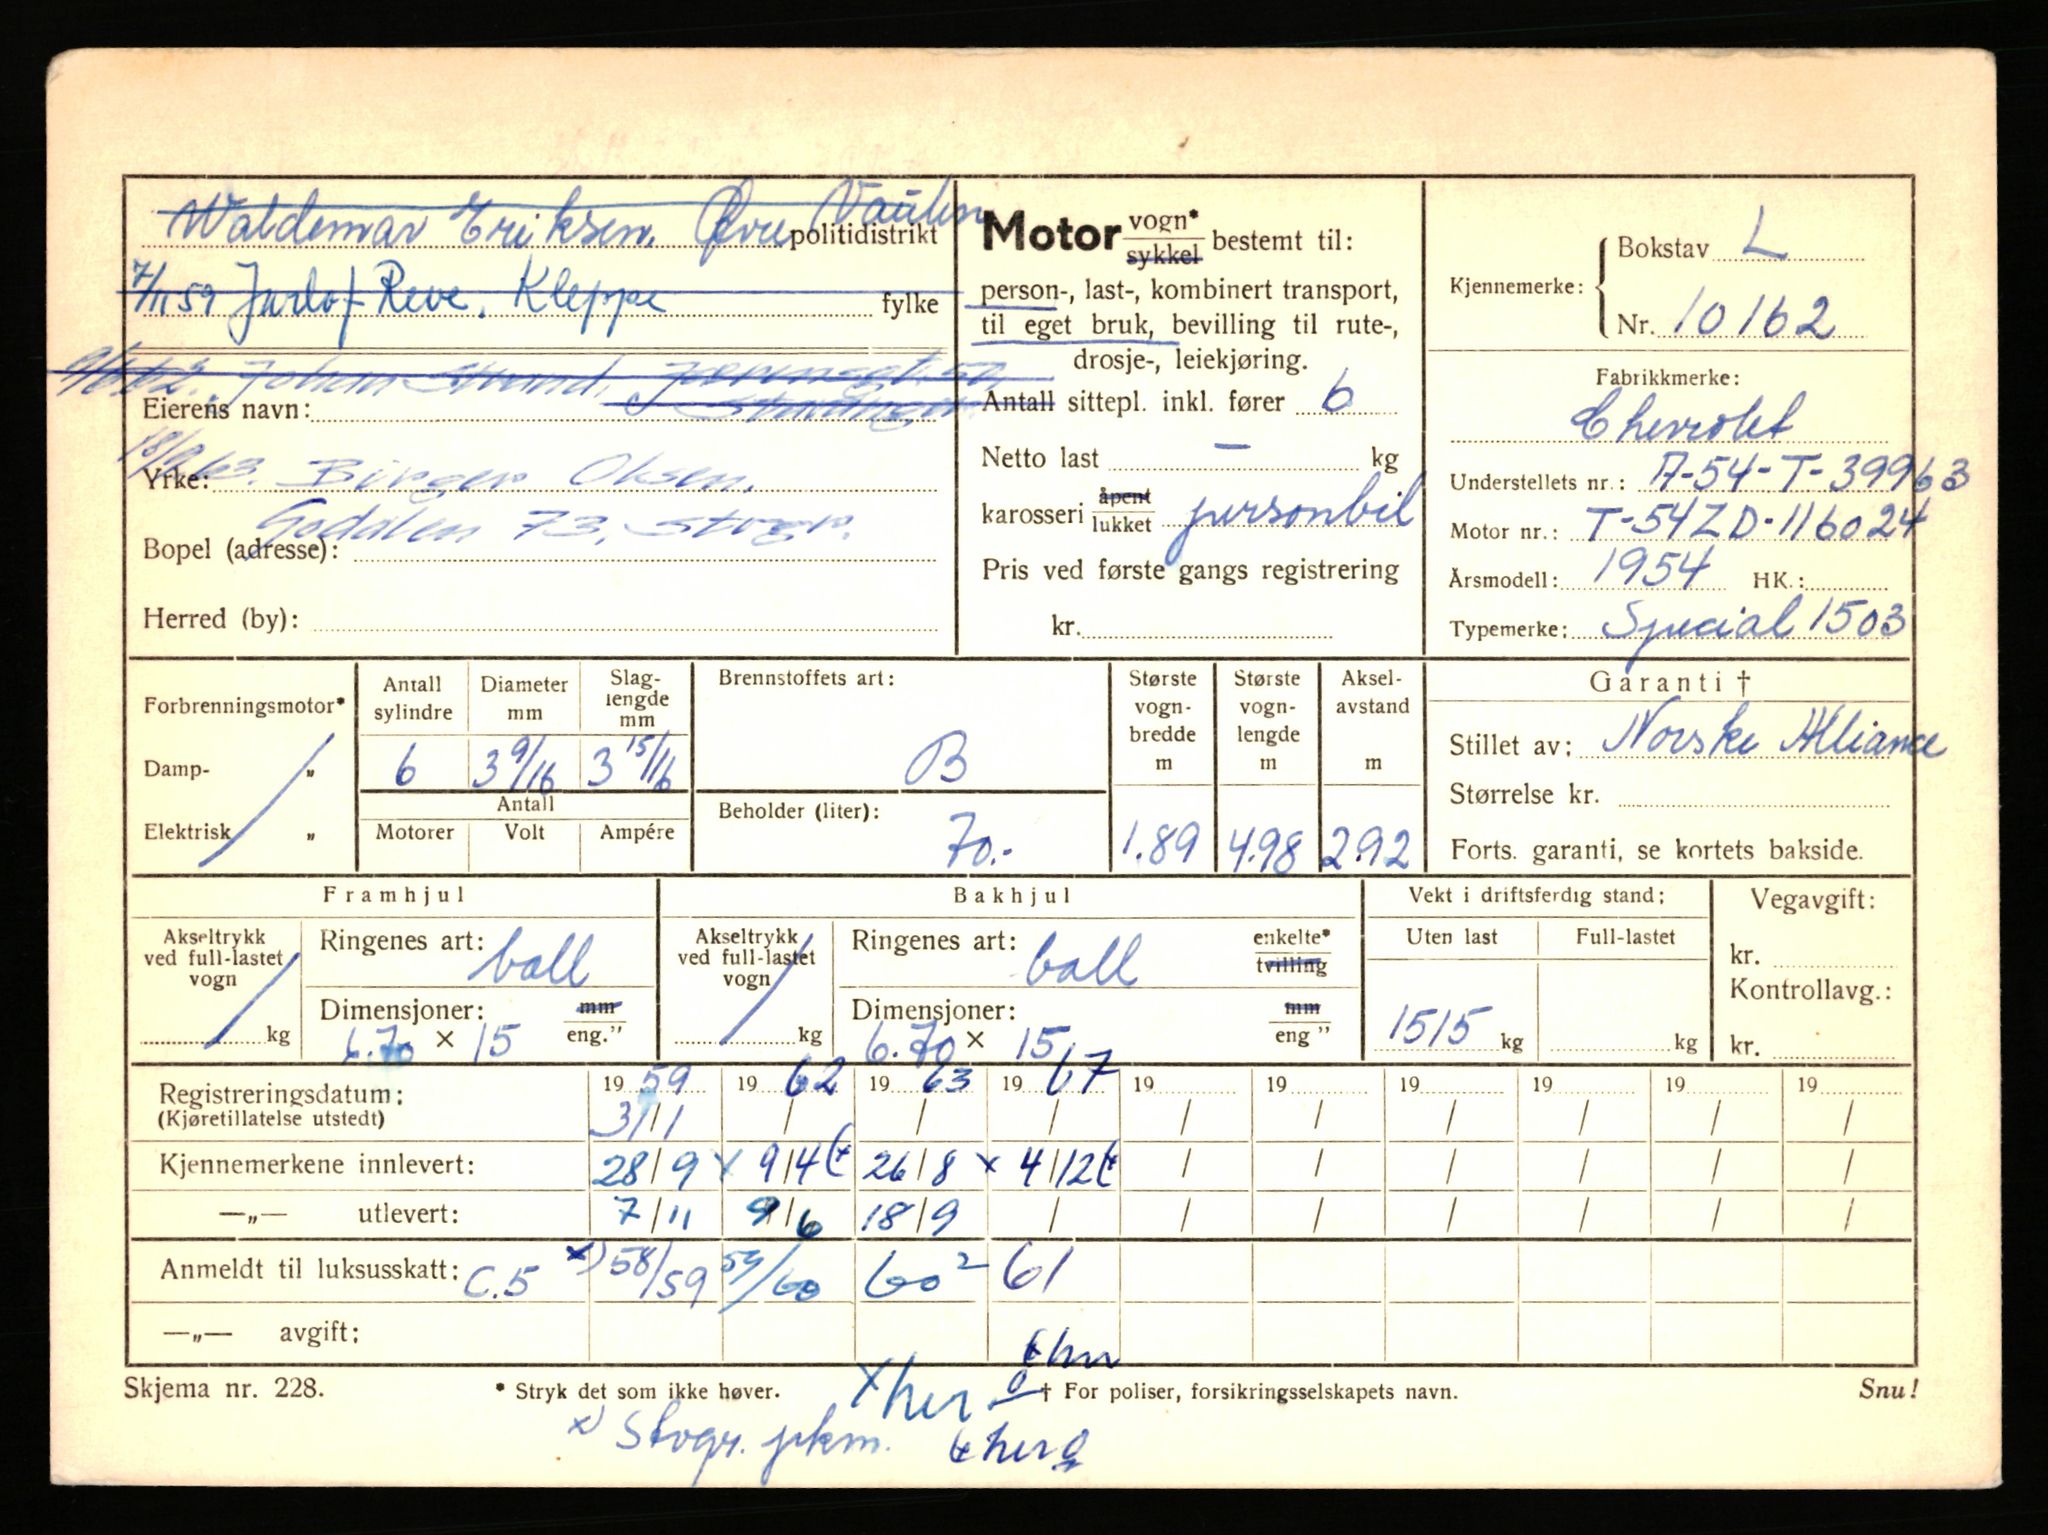 Waldemar Eriksen. Øvre Vaulen
politidistrikt
7/11 59 Jarlof Reve. Kleppe
fylke
9/6.62. Johan Strand.
Eierens navn:
18/9 63. Birger Olsen.
Yrke:
Goddalen 73. Stvgr.
Bopel (adresse):
Herred (by):
Motor vogn*
sykkel bestemt til:
person-, last-, kombinert transport,
til eget bruk, bevilling til rute-,
drosje-, leiekjøring.
Antall sittepl. inkl. fører 6
Netto last — kg
karosseri åpent
lukket personbil
Pris ved første gangs registrering
kr.
Kjennemerke: Bokstav L
Nr. 10162
Fabrikkmerke:
Chevrolet
Understellets nr.: A-54-T-39963
Motor nr.: T-54ZD-116024
Årsmodell: 1954 HK.:
Typemerke: Special 1503
Forbrenningsmotor*
Damp- „
Elektrisk „
Antall sylindre
Diameter mm
Slag-lengde mm
6 3 9/16 3 15/16
Antall
Motorer Volt Ampére
Brennstoffets art:
B
Beholder (liter):
70.-
Største vogn-bredde m
1.89
Største vogn-lengde m
4.98
Aksel-avstand m
2.92
Garanti †
Stillet av: Norske Alliance
Størrelse kr.
Forts. garanti, se kortets bakside.
Framhjul
Akseltrykk ved full-lastet vogn
kg
Ringenes art: ball
Dimensjoner: mm
6.70 × 15 eng.”
Bakhjul
Akseltrykk ved full-lastet vogn
kg
Ringenes art: ball enkelte*
tvilling
Dimensjoner: mm
6.70 × 15 eng ”
Vekt i driftsferdig stand:
Uten last Full-lastet
1515 kg kg
Vegavgift:
kr.
Kontrollavg.:
kr.
Registreringsdatum: 19 59 19 62 19 63 19 67 19 19 19 19 19 19
(Kjøretillatelse utstedt) 3/1 / / / / / / / / /
Kjennemerkene innlevert: 28/9 x 9/4 26/8 x 4/12 / / / / / /
—„— utlevert: 7/11 9/6 18/9 / / / / / / /
Anmeldt til luksusskatt: C.5 x) 58/59 59/60 60² 61
—„— avgift:
Skjema nr. 228.
* Stryk det som ikke høver.
x her
† For poliser, forsikringsselskapets navn.
Snu!
x) Stvgr. pkm.
her